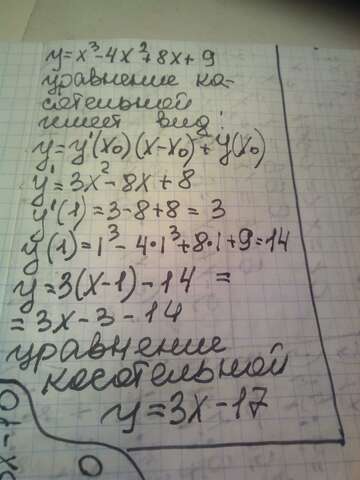 y=x³-4x²+8x+9
уравнение ка-
сательной
имеет вид:
y=y'(x₀)(x-x₀)+y(x₀)
y'=3x²-8x+8
y'(1)=3-8+8=3
y(1)=1³-4·1³+8·1+9=14
y=3(x-1)-14 =
=3x-3-14
уравнение
касательной
y=3x-17
x-10
0